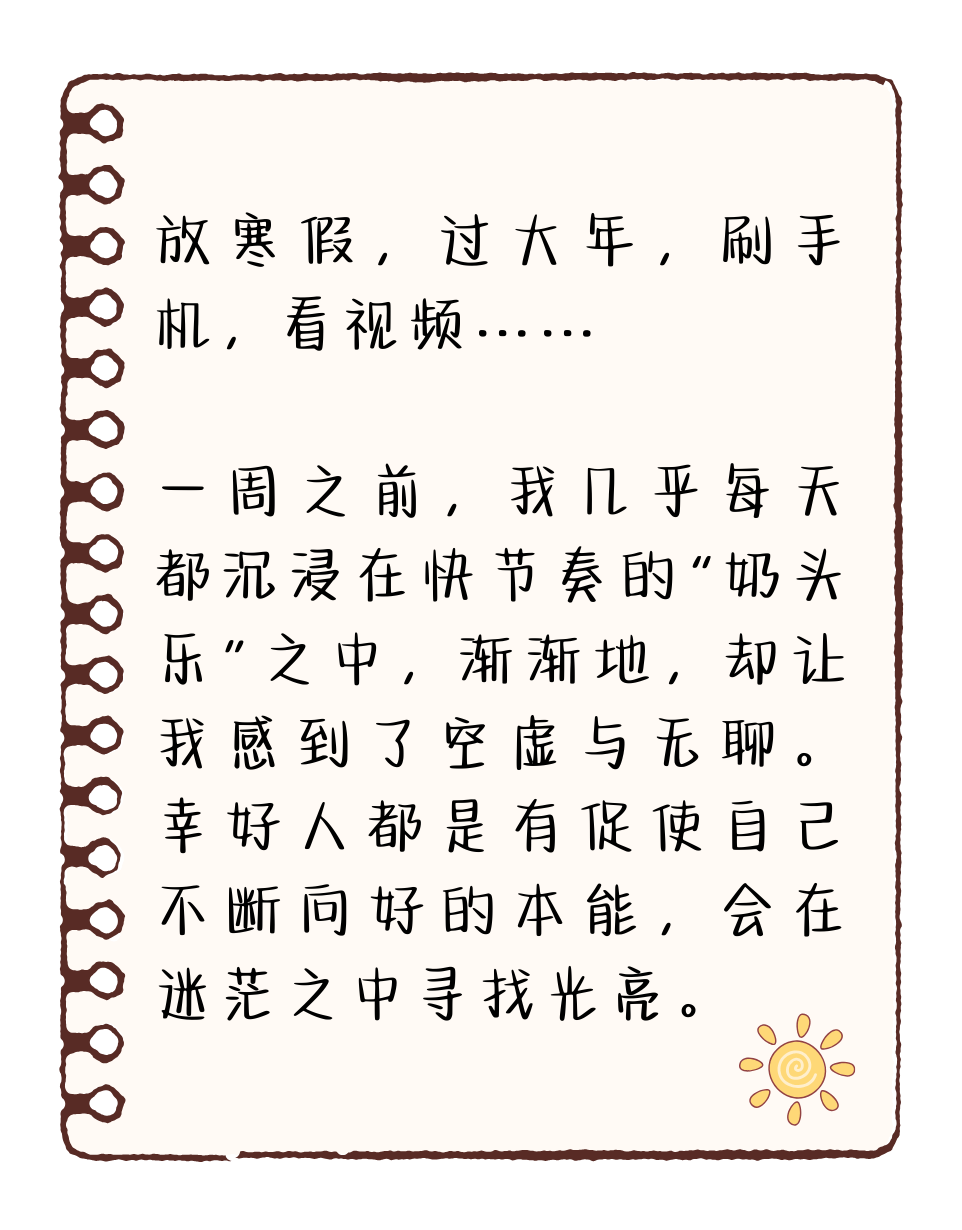 放寒假，过大年，刷手
机，看视频……
一周之前，我几乎每天
都沉浸在快节奏的“奶头
乐”之中，渐渐地，却让
我感到了空虚与无聊。
幸好人都是有促使自己
不断向好的本能，会在
迷茫之中寻找光亮。